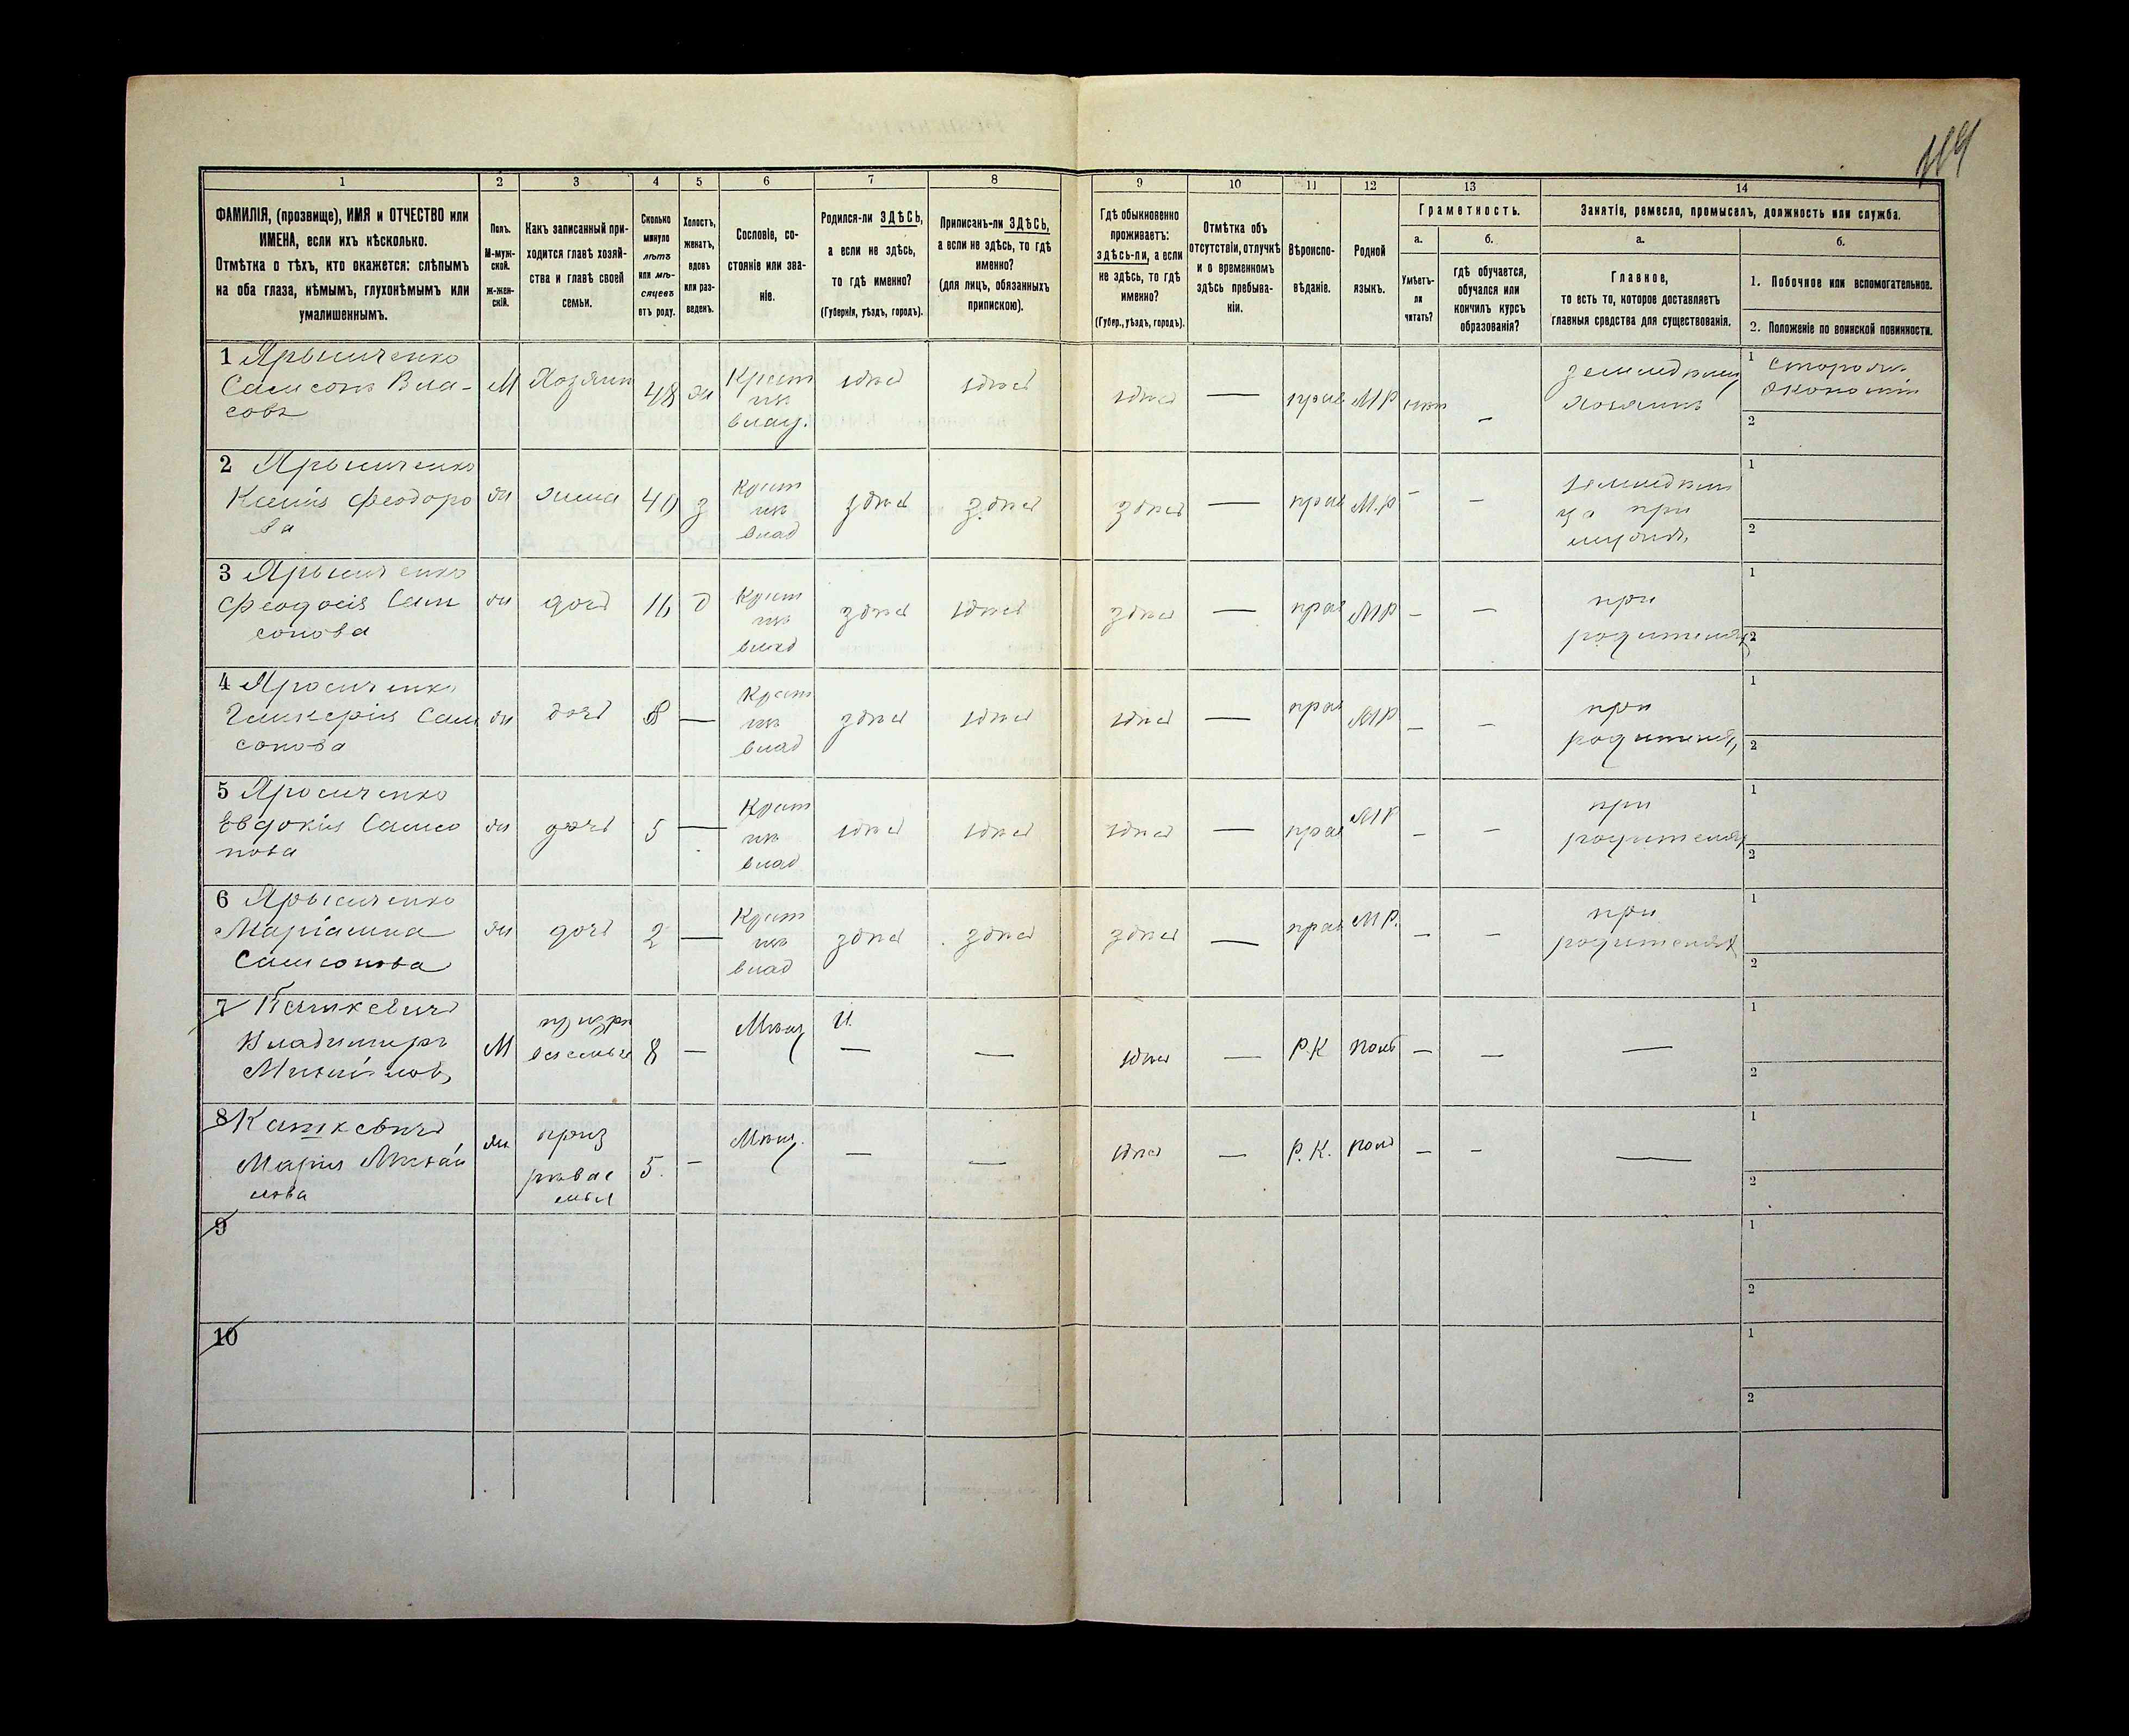 1 2 3 4 5 6 7 8 9 10 11 12 13 14
ФАМИЛІЯ, (прозвище), ИМЯ и ОТЧЕСТВО или
ИМЕНА, если ихъ нѣсколько.
Отмѣтка о тѣхъ, кто окажется: слѣпымъ
на оба глаза, нѣмымъ, глухонѣмымъ или
умалишеннымъ.
Полъ.
М-муж-
ской.
ж-жен-
скій.
Какъ записанный при-
ходится главѣ хозяй-
ства и главѣ своей
семьи.
Сколько
минуло
лѣтъ
или мѣ-
сяцевъ
отъ роду.
Холостъ,
женатъ,
вдовъ
или раз-
веденъ.
Сословіе, со-
стояніе или зва-
ніе.
Родился-ли ЗДѢСЬ,
а если не здѣсь,
то гдѣ именно?
(Губернія, уѣздъ, городъ).
Приписанъ-ли ЗДѢСЬ,
а если не здѣсь, то гдѣ
именно?
(для лицъ, обязанныхъ
припискою).
Гдѣ обыкновенно
проживаетъ:
здѣсь-ли, а если
не здѣсь, то гдѣ
именно?
(Губер., уѣздъ, городъ).
Отмѣтка объ
отсутствіи, отлучкѣ
и о временномъ
здѣсь пребыва-
ніи.
Вѣроиспо-
вѣданіе.
Родной
языкъ.
Грамотность.
а.
Умѣетъ-
ли
читать?
б.
гдѣ обучается,
обучался или
кончилъ курсъ
образованія?
Занятіе, ремесло, промыселъ, должность или служба.
а.
Главное,
то есть то, которое доставляетъ
главныя средства для существованія.
б.
1. Побочное или вспомогательное.
2. Положеніе по воинской повинности.
1 Ярысиченко
Самсонъ Вла-
совъ
М
Хозяинъ
48
ж
Крест
из
влад.
здѣсь
здѣсь
здѣсь
—
прав
МР
нѣт
—
хозяинъ
1 Сторожъ
экономіи
2
2 Ярысиченко
Ксенія Феодоро
ва
ж
жена
40
з
Крест
из
влад
здѣсь
здѣсь
здѣсь
—
прав
М.Р
—
—
при
мужѣ
1
2
3 Ярысиченко
Феодосія Сам
сонова
ж
дочь
16
д
Крест
из
влад
здѣсь
здѣсь
здѣсь
—
прав
МР
—
—
при
родителях
1
2
4 Яросиченко
Гликерія Сам
сонова
ж
дочь
8
—
Крест
из
влад
здѣсь
здѣсь
здѣсь
—
прав
МР
—
—
при
родителях
1
2
5 Яросиченко
Евдокія Самсо
нова
ж
дочь
5
—
Крест
из
влад
здѣсь
здѣсь
здѣсь
—
прав
МР
—
—
при
родителях
1
2
6 Ярысиченко
Маріамна
Самсонова
ж
дочь
2
—
Крест
из
влад
здѣсь
здѣсь
здѣсь
—
прав
МР.
—
—
при
родителях
1
2
7
Владимиръ
Михайловъ
М
8
—
Мѣщ
—
—
здѣсь
—
Р.К
—
—
—
1
2
8 Каткевичъ
Марія Михай
лова
ж
5.
—
Мѣщ.
—
—
здѣсь
—
Р.К.
—
—
—
1
2
9
1
2
10
1
2